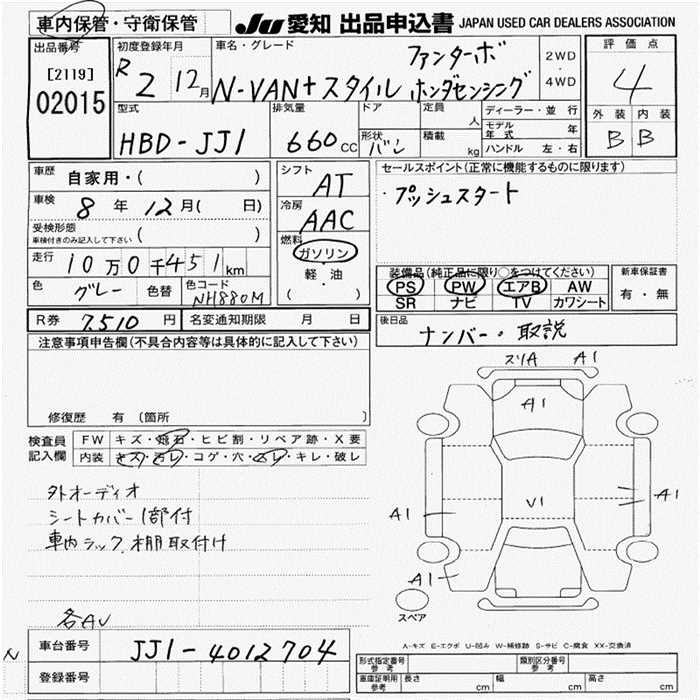 車内保管・守衛保管
JU 愛知 出品申込書 JAPAN USED CAR DEALERS ASSOCIATION
出品番号
[2119]
02015
初度登録年月
R2 12月
車名・グレード
ファンターボ
N-VAN+スタイル ホンダセンシング
2WD
・
4WD
評価点
4
外装 内装
B B
型式
HBD-JJ1
排気量
660cc
ドア
形状
バン
定員
人
積載
kg
ディーラー・並行
モデル年式 年
ハンドル 左・右
車歴
自家用・( )
車検
8年 12月( 日)
受検形態
車検付きのみ記入して下さい ( )
走行
10万0千451km
色
グレー
色替
色コード
NH880M
シフト
AT
冷房
AAC
燃料
ガソリン
軽・油
( )
セールスポイント(正常に機能するものに限ります)
・プッシュスタート
装備品(純正品に限り○をつけてください)
PS PW エアB AW
SR ナビ TV カワシート
新車保証書
有・無
R券 7,510円
名変通知期限 月 日
後日品
ナンバー・取説
注意事項申告欄(不具合内容等は具体的に記入して下さい)
修復歴 有(箇所
検査員記入欄
FW キズ・飛石・ヒビ割・リペア跡・X要
内装 キズ・汚レ・コゲ・穴・スレ・キレ・破レ
外オーディオ
シートカバー1部付
車内ラック、棚取付け
各AU
ズリA A1
A1
V1
A1
A1
A1
スペア
A-キズ E-エクボ U-凹み W-補修跡 S-サビ C-腐食 XX-交換済
N
車台番号 JJ1-4012704
登録番号
形式指定番号 参考
類別区分番号 参考
車庫証明用 参考
長さ cm 幅 cm 高さ cm